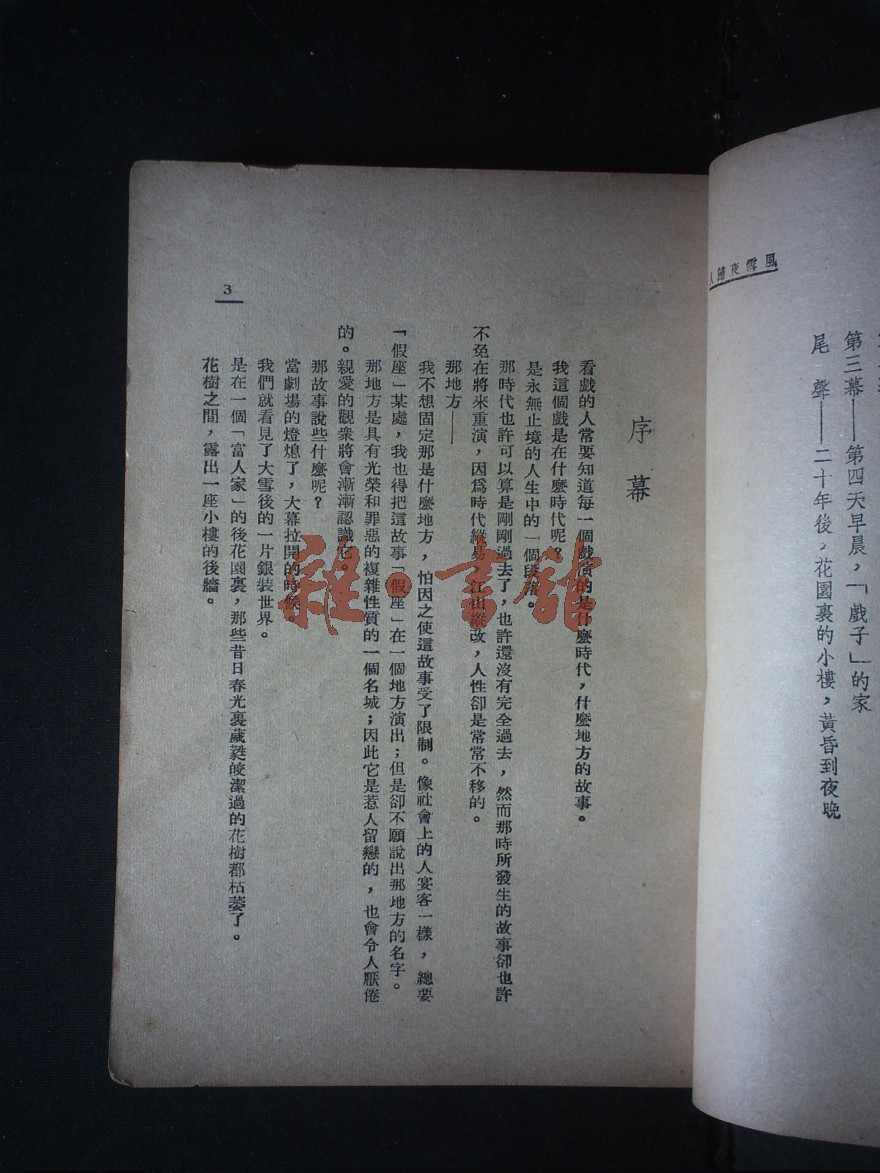 風雪夜歸人
第三幕——第四天早晨，「戲子」的家
尾　聲——二十年後，花園裏的小樓，黃昏到夜晚
序幕
看戲的人常要知道每一個戲演的是什麼時代，什麼地方的故事。
我這個戲是在什麼時代呢？
是永無止境的人生中的一個段落。
那時代也許可以算是剛剛過去了，也許還沒有完全過去，然而那時所發生的故事卻也許
不免在將來重演，因爲時代縱易，江山縱改，人性卻是常常不移的。
那地方——
我不想固定那是什麼地方，怕因之使這故事受了限制。像社會上的人宴客一樣，總要
「假座」某處，我也得把這故事「假座」在一個地方演出；但是卻不願說出那地方的名字。
那地方是具有光榮和罪惡的複雜性質的一個名城；因此它是惹人留戀的，也會令人厭倦
的。親愛的觀衆將會漸漸認識它。
那故事說些什麼呢？
當劇場的燈熄了，大幕拉開的時候。
我們就看見了大雪後的一片銀裝世界。
是在一個「富人家」的後花園裏，那些昔日春光裏葳蕤皎潔過的花樹都枯萎了。
花樹之間，露出一座小樓的後牆。
3
雜·書館